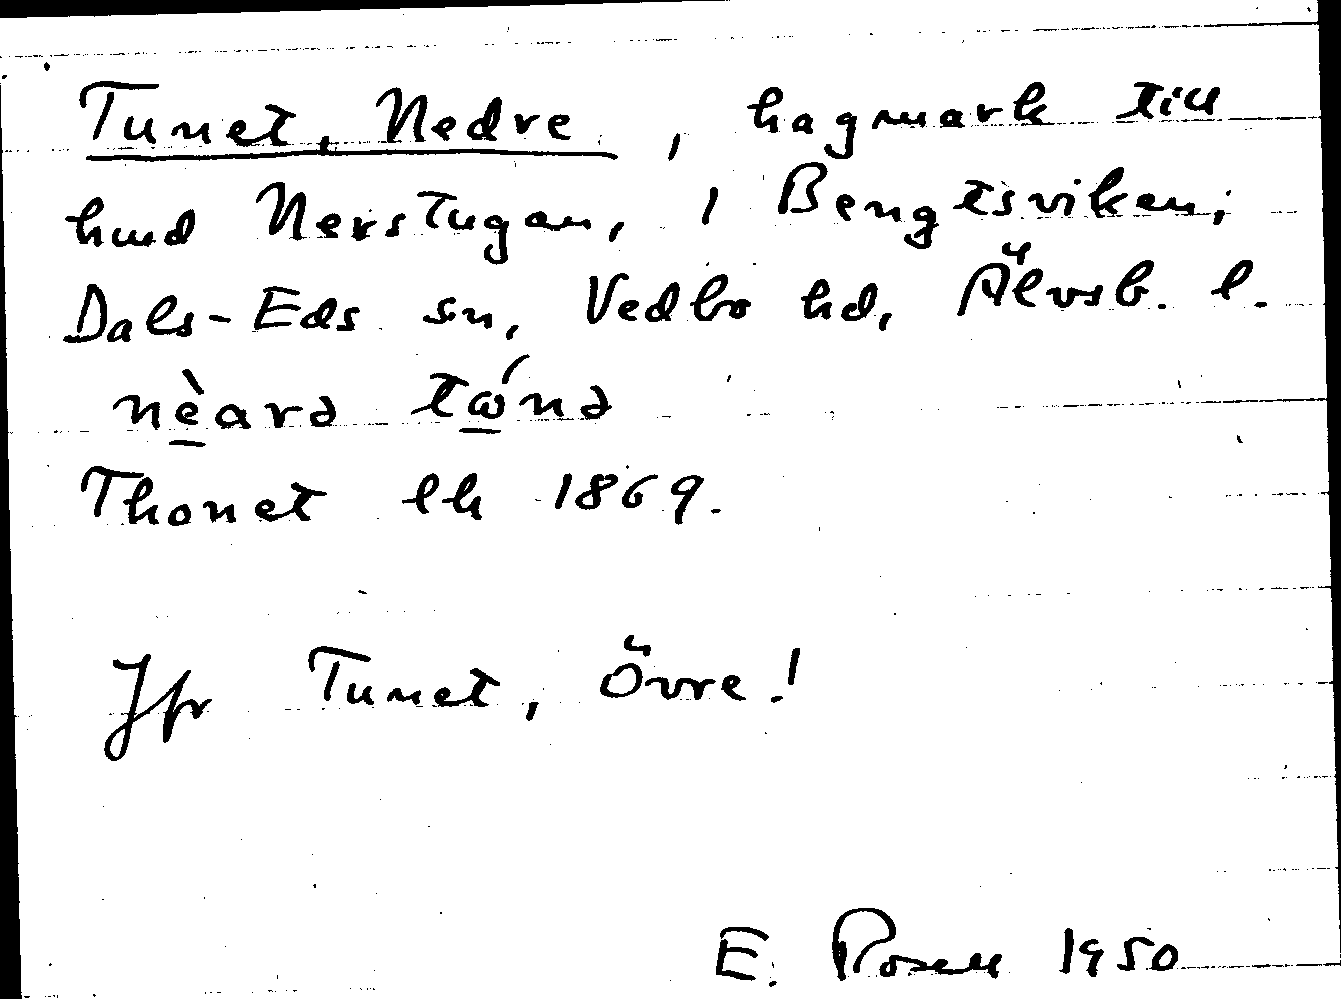 Tunet, Nedre, hagmark till
hmd Nerstugan, 1 Bengtsviken,
Dals-Eds sn, Vedbo hd, Älvsb. l.
nèarə tǿnə
Thonet lk 1869.
Jfr Tunet, Övre!
E. Rosell 1950